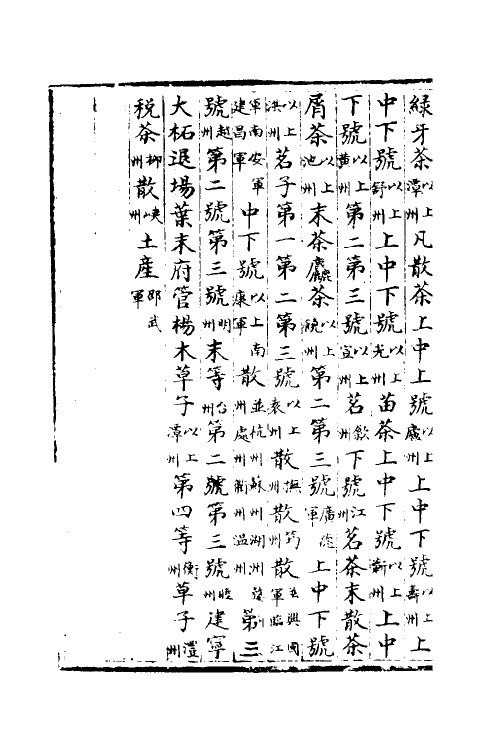 緑牙茶以上潭州凡散茶上中上號以上廬州上中下號以上壽州上
中下號以上舒州上中下號以上光州苗茶上中下號以上蘄州上中
下號以上黄州第二第三號以上宣州茗歙州下號江州茗茶末散茶
屑茶以上池州末茶麤茶以上饒州第二第三號廣德軍上中下號
以上洪州茗子第一第二第三號以上袁州散撫州散筠州散並興國軍臨江
軍南安軍建昌軍中下號以上南康軍散並杭州蘇州湖州婺州處州衢州温州第三
號越州第二號第三號明州末等台州第二號第三號睦州建寧
大柘退場葉末府管楊木草子以上潭州第四等衡州草子澧州
税茶郴州散峽州土産邵武軍